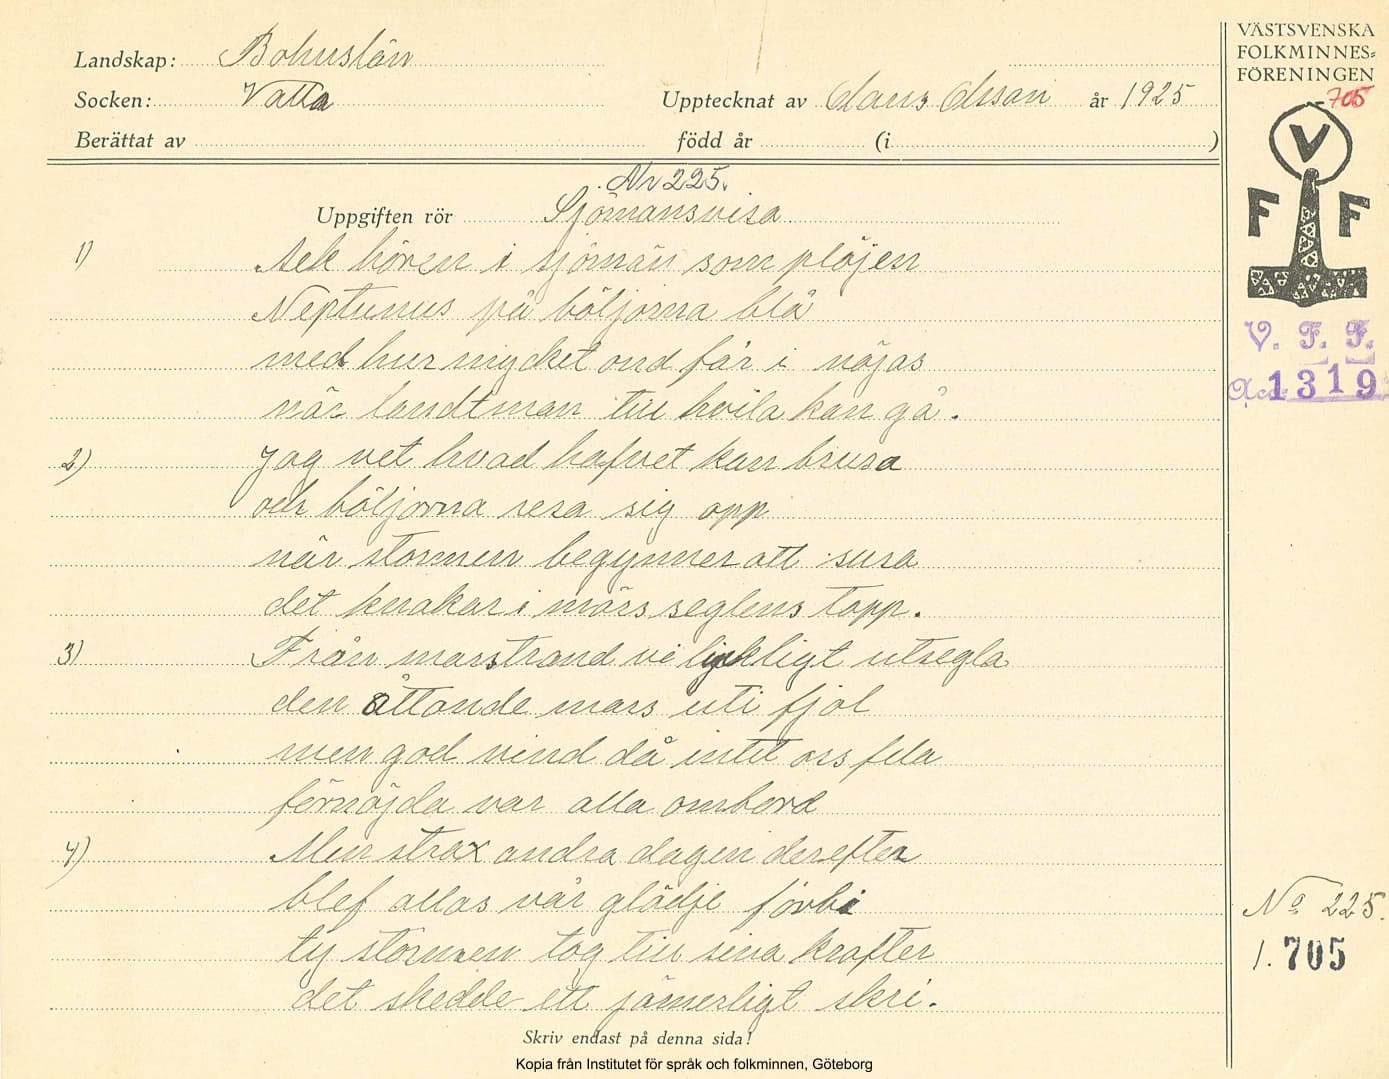 Landskap: Bohuslän
Socken: Valla
Upptecknat av Claus Olsson år 1925
Berättat av född år (i )
Nr 225.
Uppgiften rör Sjömansvisa
1) Ack hören i sjömän som plöjen
Neptunus på böljorna blå
med hur mycket ond får i nöjas
när landtman till hvila kan gå.
2) Jag vet hvad hafvet kan brusa
och böljorna resa sig opp
när stormen begynner att susa
det knakar i märs seglens topp.
3) Från marstrand vi lyckligt utsegla
den åttonde mars uti fjol
men god vind då intet oss fela
förnöjda var alla ombord
4) Men strax andra dagen derefter
blef allas vår glädje förbi
ty stormen tog till sina krafter
det skedde ett jämerligt skri.
Skriv endast på denna sida!
Kopia från Institutet för språk och folkminnen, Göteborg
VÄSTSVENSKA
FOLKMINNES=
FÖRENINGEN
705
V
F F
V. F. F.
Acc 1319
No 225.
1. 705